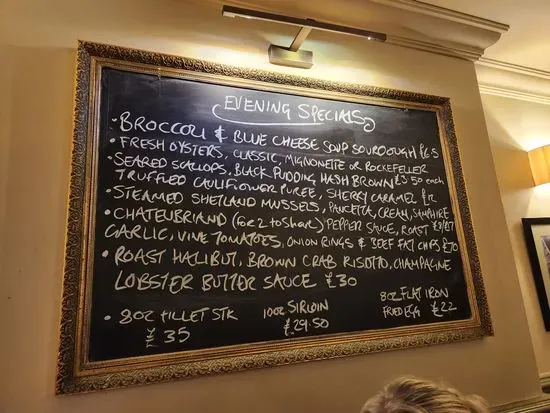 EVENING SPECIALS
• BROCCOLI & BLUE CHEESE SOUP SOURDOUGH £6.5
• FRESH OYSTERS, CLASSIC, MIGNONETTE OR ROCKEFELLER £3.50 each
• SEARED SCALLOPS, BLACK PUDDING HASH BROWN
TRUFFLED CAULIFLOWER PUREE, SHERRY CARAMEL £12
• STEAMED SHETLAND MUSSELS, PANCETTA, CREAM, SAMPHIRE
• CHATEUBRIAND (for 2 to share) PEPPER SAUCE, ROAST
GARLIC, VINE TOMATOES, ONION RINGS & BEEF FAT CHIPS £70
• ROAST HALIBUT, BROWN CRAB RISOTTO, CHAMPAGNE
LOBSTER BUTTER SAUCE £30
• 8oz FILLET STK 10oz SIRLOIN 8oz FLAT IRON
FRIED EGG £22
£35 £29.50